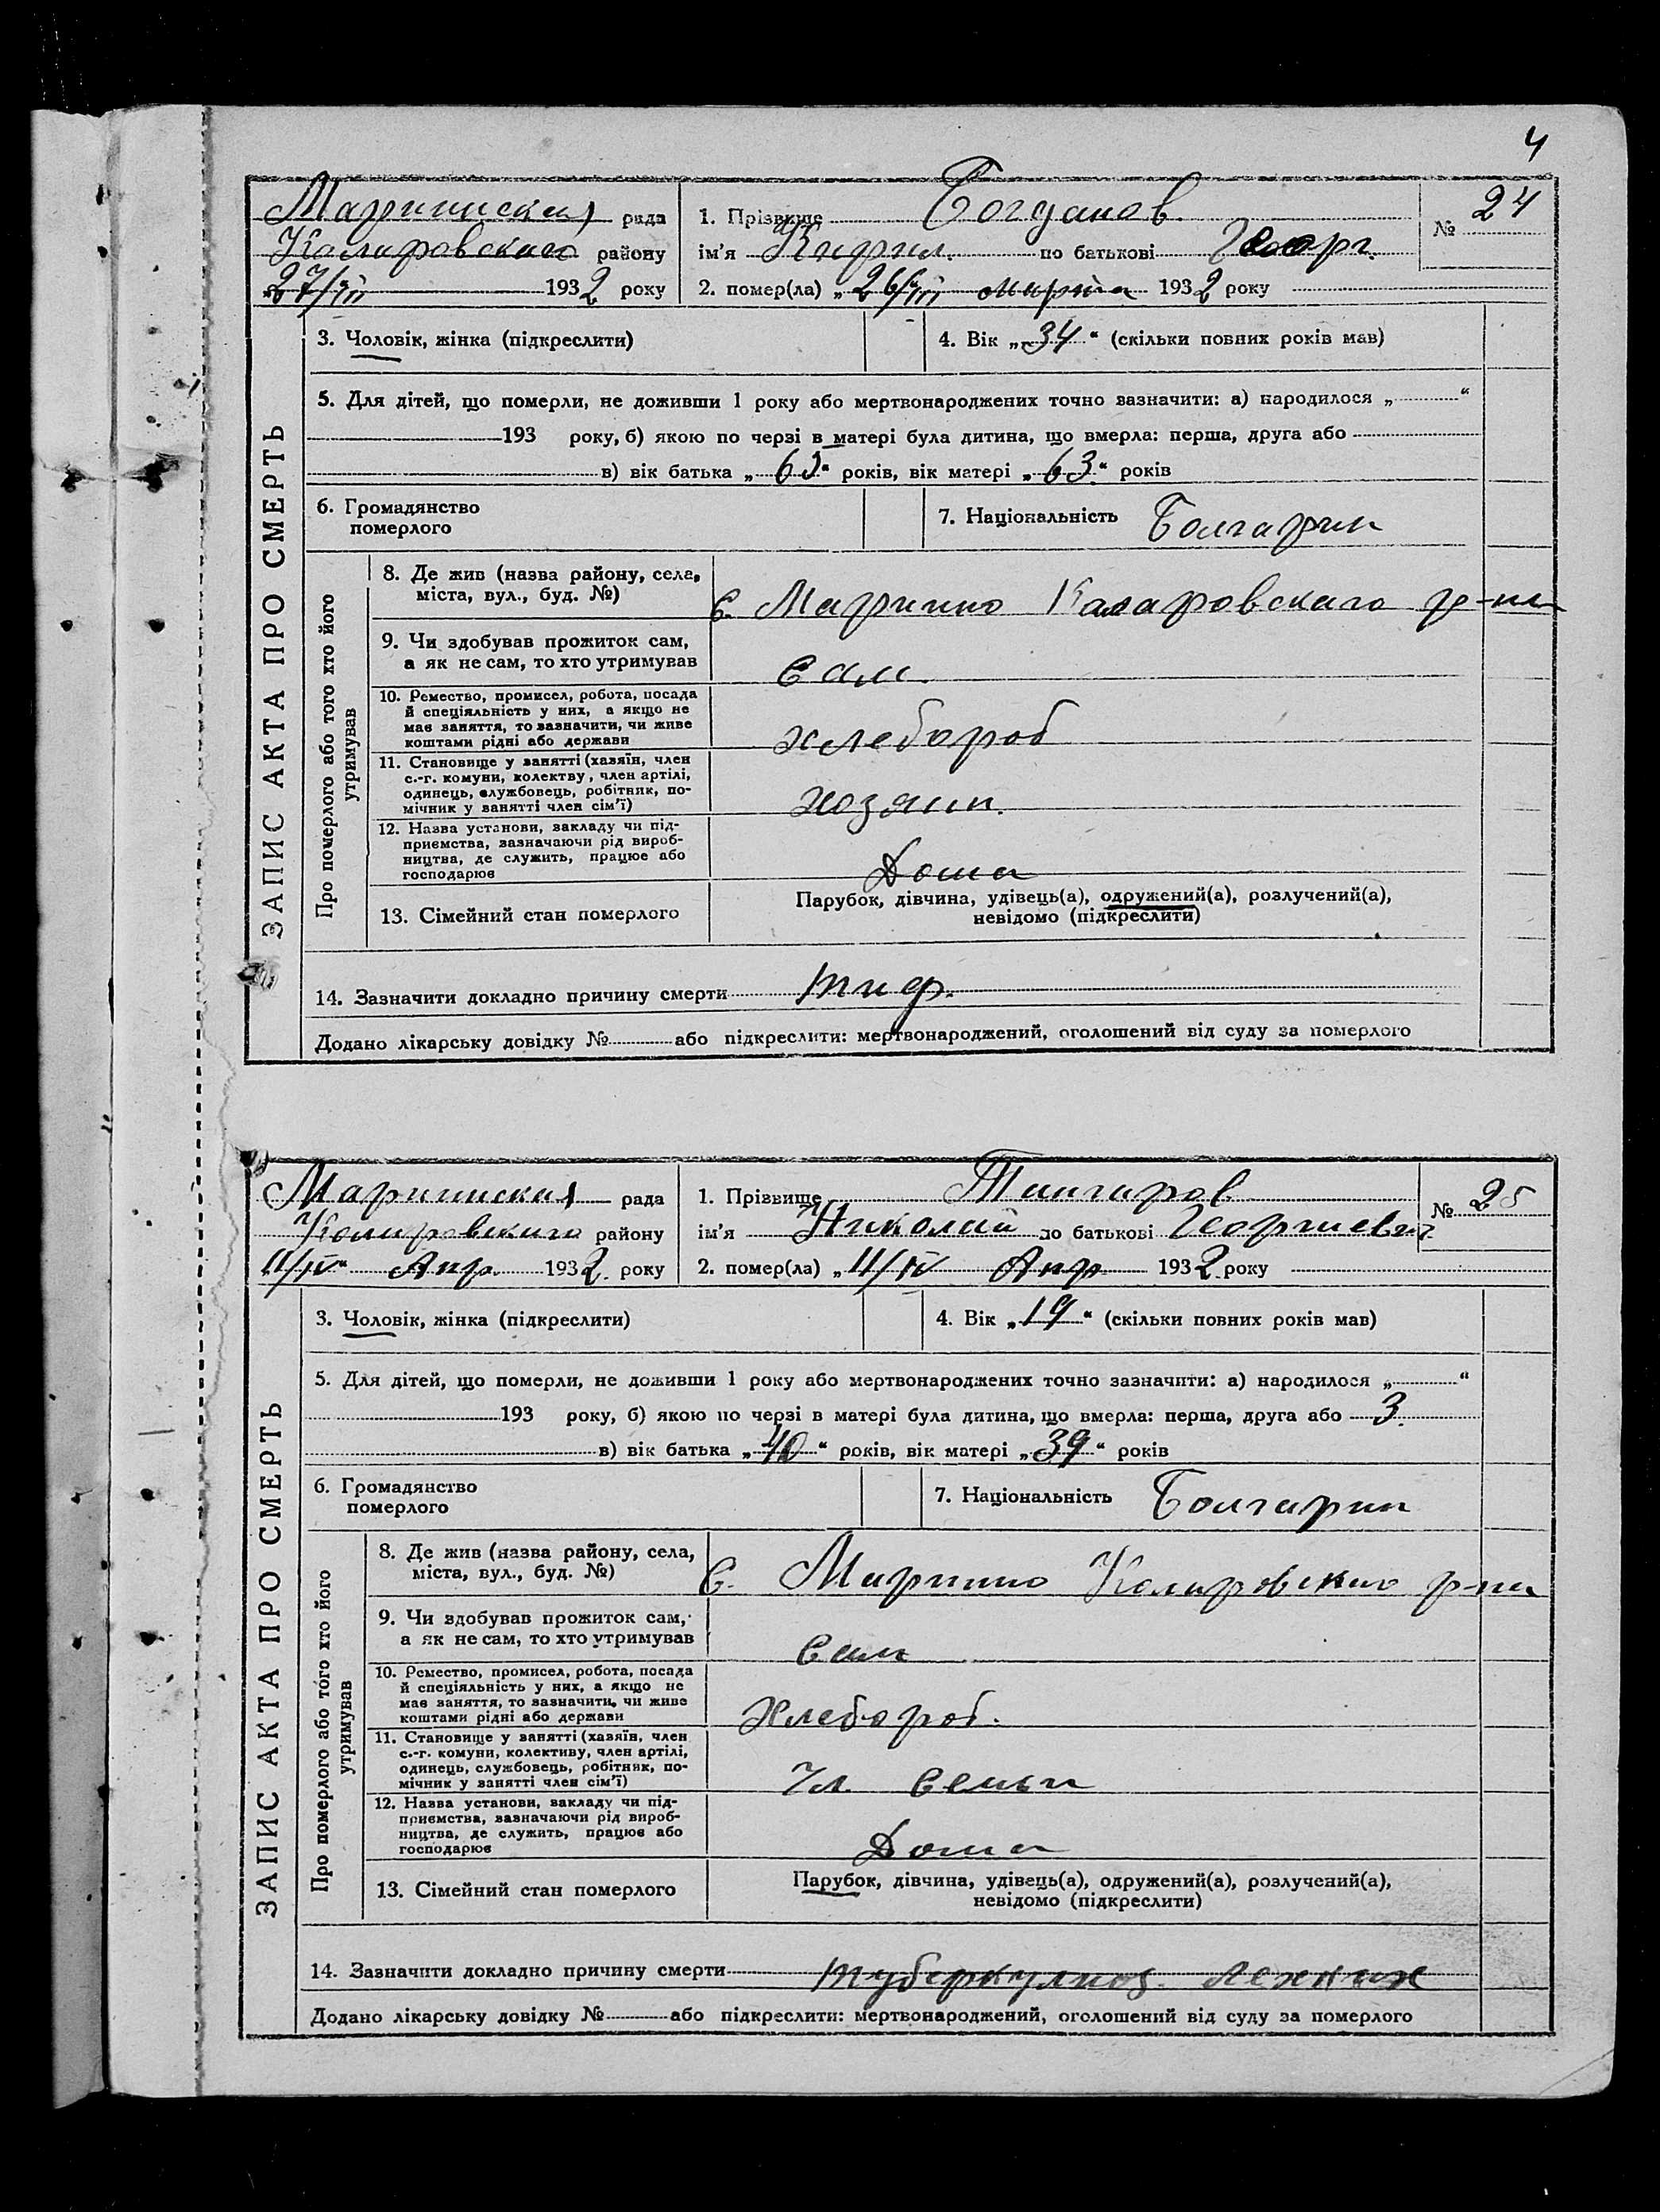 4
Мариинская рада
Коларовского району
27/III 1932 року
1. Прізвище Богданов
ім'я Кирил по батькові Георг.
2. помер(ла) „26/III марта 1932 року
№ 24
3. Чоловік, жінка (підкреслити)
4. Вік „34“ (скільки повних років мав)
5. Для дітей, що померли, не доживши 1 року або мертвонароджених точно зазначити: а) народилося „ “
193 року, б) якою по черзі в матері була дитина, що вмерла: перша, друга або
в) вік батька „63“ років, вік матері „63“ років
6. Громадянство
померлого
7. Національність Болгарин
ЗАПИС АКТА ПРО СМЕРТЬ
Про померлого або того хто його
утримував
8. Де жив (назва району, села,
міста, вул., буд. №)
с. Мариино Коларовскаго р-на
9. Чи здобував прожиток сам,
а як не сам, то хто утримував
сам.
10. Ремество, промисел, робота, посада
й спеціяльність у них, а якщо не
має заняття, то зазначити, чи живе
коштами рідні або держави
хлебороб
11. Становище у занятті (хазяїн, член
с.-г. комуни, колективу, член артілі,
одинець, службовець, робітник, по-
мічник у занятті член сім'ї)
хозяин.
12. Назва установи, закладу чи під-
приємства, зазначаючи рід вироб-
ництва, де служить, працює або
господарює
Дома
13. Сімейний стан померлого
Парубок, дівчина, удівець(а), одружений(а), розлучений(а),
невідомо (підкреслити)
14. Зазначити докладно причину смерти тиф.
Додано лікарську довідку № або підкреслити: мертвонароджений, оголошений від суду за померлого
Мариинская рада
Коларовского району
11/IV Апр. 1932 року
1. Прізвище Тангаров
ім'я Николай по батькові Георгиевич
2. помер(ла) „11/IV Апр 1932 року
№ 25
3. Чоловік, жінка (підкреслити)
4. Вік „19“ (скільки повних років мав)
5. Для дітей, що померли, не доживши 1 року або мертвонароджених точно зазначити: а) народилося „ “
193 року, б) якою по черзі в матері була дитина, що вмерла: перша, друга або 3.
в) вік батька „40“ років, вік матері „39“ років
6. Громадянство
померлого
7. Національність Болгарин
ЗАПИС АКТА ПРО СМЕРТЬ
Про померлого або того хто його
утримував
8. Де жив (назва району, села,
міста, вул., буд. №)
с. Мариино Коларовского р-на
9. Чи здобував прожиток сам,
а як не сам, то хто утримував
сам
10. Ремество, промисел, робота, посада
й спеціяльність у них, а якщо не
має заняття, то зазначити, чи живе
коштами рідні або держави
Хлебороб.
11. Становище у занятті (хазяїн, член
с.-г. комуни, колективу, член артілі,
одинець, службовець, робітник, по-
мічник у занятті член сім'ї)
Чл. семьи
12. Назва установи, закладу чи під-
приємства, зазначаючи рід вироб-
ництва, де служить, працює або
господарює
Дома
13. Сімейний стан померлого
Парубок, дівчина, удівець(а), одружений(а), розлучений(а),
невідомо (підкреслити)
14. Зазначити докладно причину смерти туберкулиоз
Додано лікарську довідку № або підкреслити: мертвонароджений, оголошений від суду за померлого